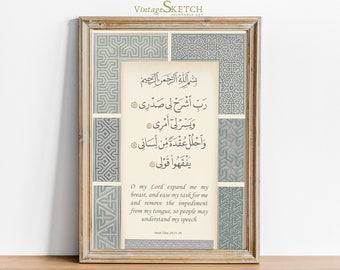 Vintage SKETCH
PRINTABLE ART
بِسْمِ اللَّهِ الرَّحْمَنِ الرَّحِيمِ
رَبِّ اشْرَحْ لِي صَدْرِي
وَيَسِّرْ لِي أَمْرِي
وَاحْلُلْ عُقْدَةً مِّن لِّسَانِي
يَفْقَهُوا قَوْلِي
O my Lord expand me my
breast, and ease my task for me
and remove the impediment
from my tongue, so people may
understand my speech